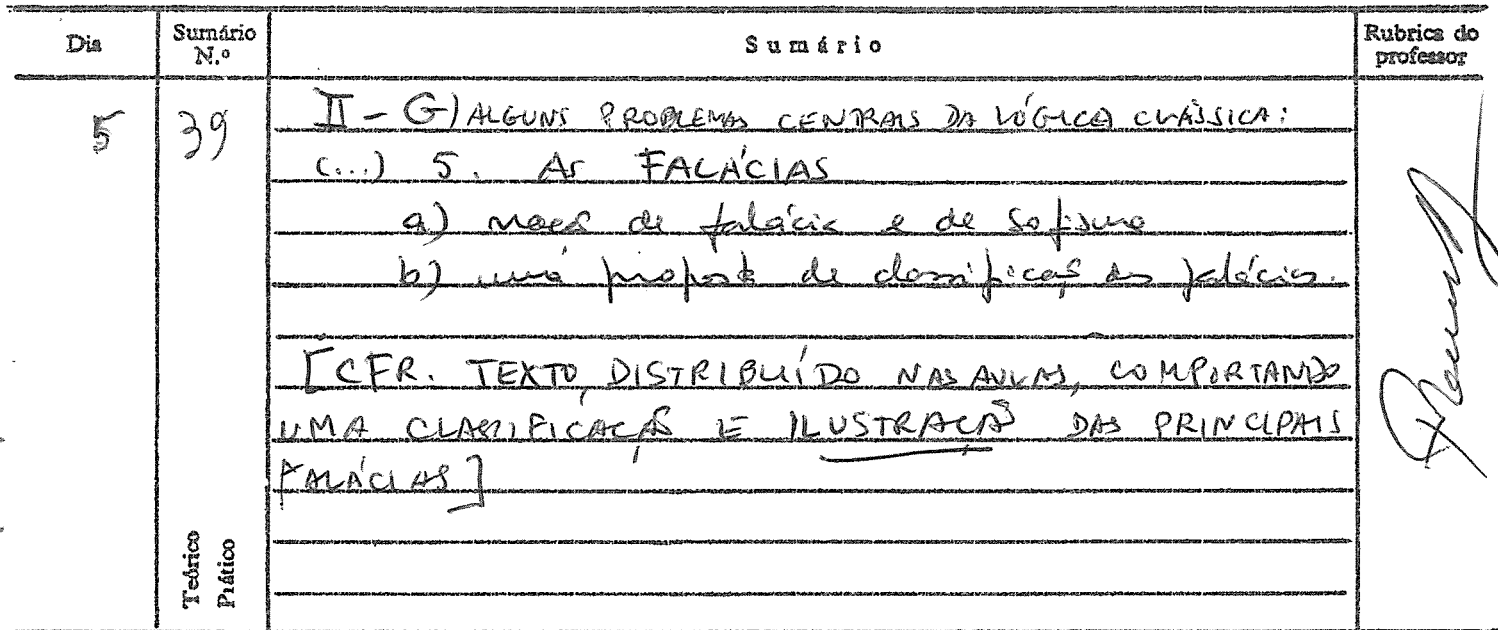 Dia
Sumário N.º
Sumário
Rubrica do professor
5
39
II - G) ALGUNS PROBLEMAS CENTRAIS DA LÓGICA CLÁSSICA:
(...) 5. As FALÁCIAS
a) noção de falácia e de sofisma
b) uma proposta de classificação das falácias.
[CFR. TEXTO, DISTRIBUÍDO NAS AULAS, COMPORTANDO
UMA CLASSIFICAÇÃO E ILUSTRAÇÃO DAS PRINCIPAIS
FALÁCIAS]
Teórico
Prático